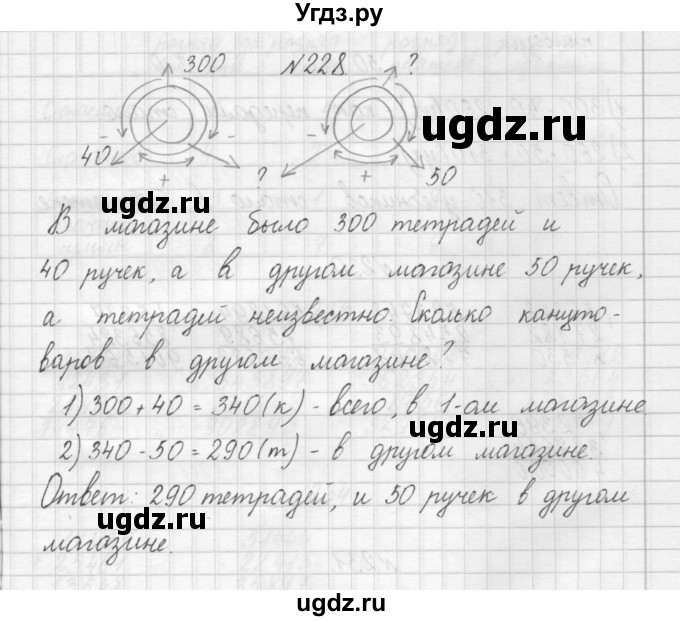 Угдз.ру
300 №228 ?
ugdz.ru
- - - -
40 ? 50
+ +
ugdz.ru
В магазине было 300 тетрадей и
40 ручек, а в другом магазине 50 ручек,
а тетрадей неизвестно. Сколько канцто-
варов в другом магазине?
1) 300+40=340(к) - всего, в 1-ом магазине
ugdz.ru
2) 340-50=290(т) - в другом магазине.
Ответ: 290 тетрадей, и 50 ручек в другом
ugdz.ru
магазине.
ugdz.ru